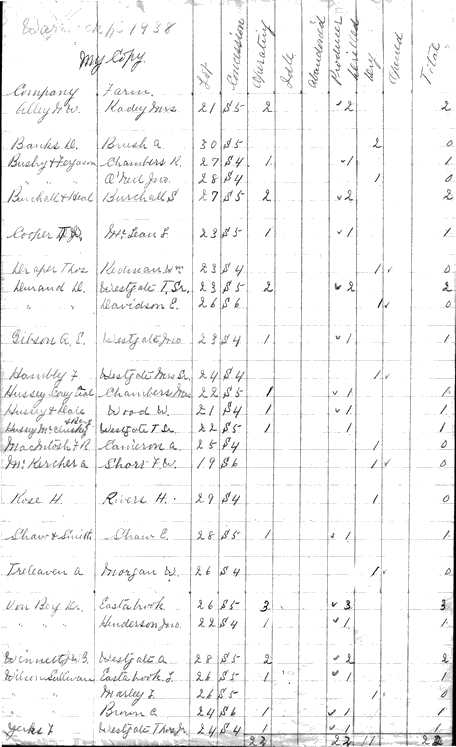 Warwick Tp. 1938
My Copy.
Company Farm. Lot Concession Operating Idle Abandoned Producer Drilled Dry Total
Kadey Mrs 21 S 5 2 ✓2 2
Banks D. Brush A 30 S 5 2 0
Busby & Ferguson Chambers R. 27 S 4 1 ✓1 1
" " " O'Neil Jno. 28 S 4 1 0
Burchall & Heal Burchall S 27 S 5 2 ✓2 2
Cooper McLean F. 23 S 5 1 ✓1 1
Draper Thos Redman Wm 23 S 4 1✓ 0
Durand D. Westgate T. Sr. 23 S 5 2 ✓2 2
" " Davidson E. 26 S 6 1✓ 0
Gibson A, E. Westgate Jno 23 S 4 1 ✓1 1
Hambly F Westgate Mrs Sr. 24 S 4 1✓ 0
Hussey Chambers Mrs 22 S 5 1 ✓1 1
Hussey & Wood W. 21 S 4 1 ✓1 1
Hussey Westgate T. Sr 22 S 5 1 1 1
MacIntosh F. R. Cameron A 25 S 4 1 0
McKercher A Short F. W. 19 S 6 1✓ 0
Rose H. Rivers H. 29 S 4 1 0
Shaw & Smith Shaw E. 28 S 5 1 ✓1 1
Treleaven A Morgan W. 26 S 4 1✓ 0
Von Bey Dr. Eastabrook 26 S 5 3 ✓3 3
" " " Henderson Jno. 22 S 4 1 ✓1 1
Winnett Westgate A 28 S 5 2 ✓2 2
Wilson Sullivan Eastabrook F. 26 S 5 1 ✓1 1
" " Marley F. 26 S 5 1 0
" Brown C 24 S 6 1 ✓1 1
Yerks F Westgate Thos Jr 24 S 4 1 ✓1 1
22 22 11 22